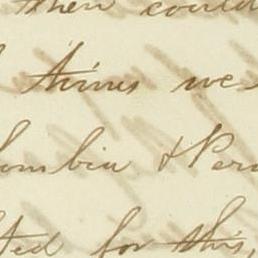 then could
times we
lombia & Peru
ted for this,